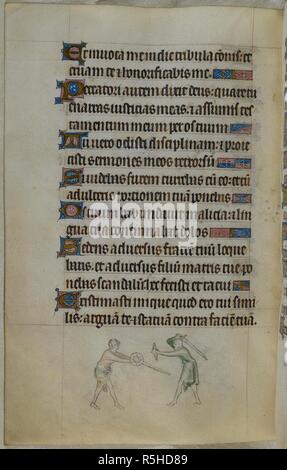 Et invoca me in die tribulaconis: et
Peccatori autem dixit deus: quare tu
enarras iusticias meas: & assumis tes
tamentum meum per os tuum
Tu vero odisti disciplinam: & proie
cisti sermones meos retrorsum
Si videbas furem currebas cū eo: et cū
adulteris portionem tuam ponebas
Os tuum habundavit malicia: & lin
gua tua concinnabat dolos
Sedens adversus fratrē tuū loque
baris: et adversus filiū matris tue po
nebas scandalū: hec fecisti et tacui
Existimasti inique quod ero tui simi
lis: arguam te & statuam contra faciē tuā.
alamy
R5HD89
www.alamy.com